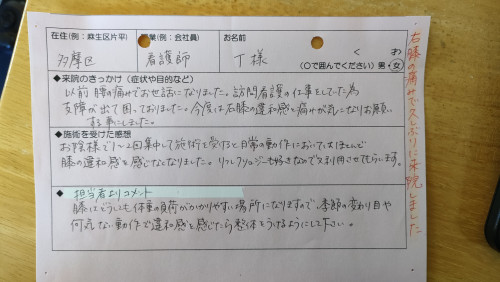 在住(例:麻生区片平)
職業(例:会社員)
お名前
多摩区
看護師
T様
(○で囲んでください)男・女
◆来院のきっかけ(症状や目的など)
以前腰の痛みでお世話になりました。訪問看護の仕事をしていた為
支障が出て困っておりました。今度は右膝の違和感と痛みが気になりお願い
する事にしました。
◆施術を受けた感想
お陰様で1〜2回集中して施術を受けると日常の動作においてはほとんど
膝の違和感を感じなくなりました。リフレクソロジーも好きなので又利用させてもらいます。
◆担当者よりコメント
膝はどうしても体重の負荷がかかりやすい場所になりますので季節の変わり目や
何気ない動作で違和感を感じたら整体をうけるようにして下さい。
右膝の痛みで久しぶりに来院しました